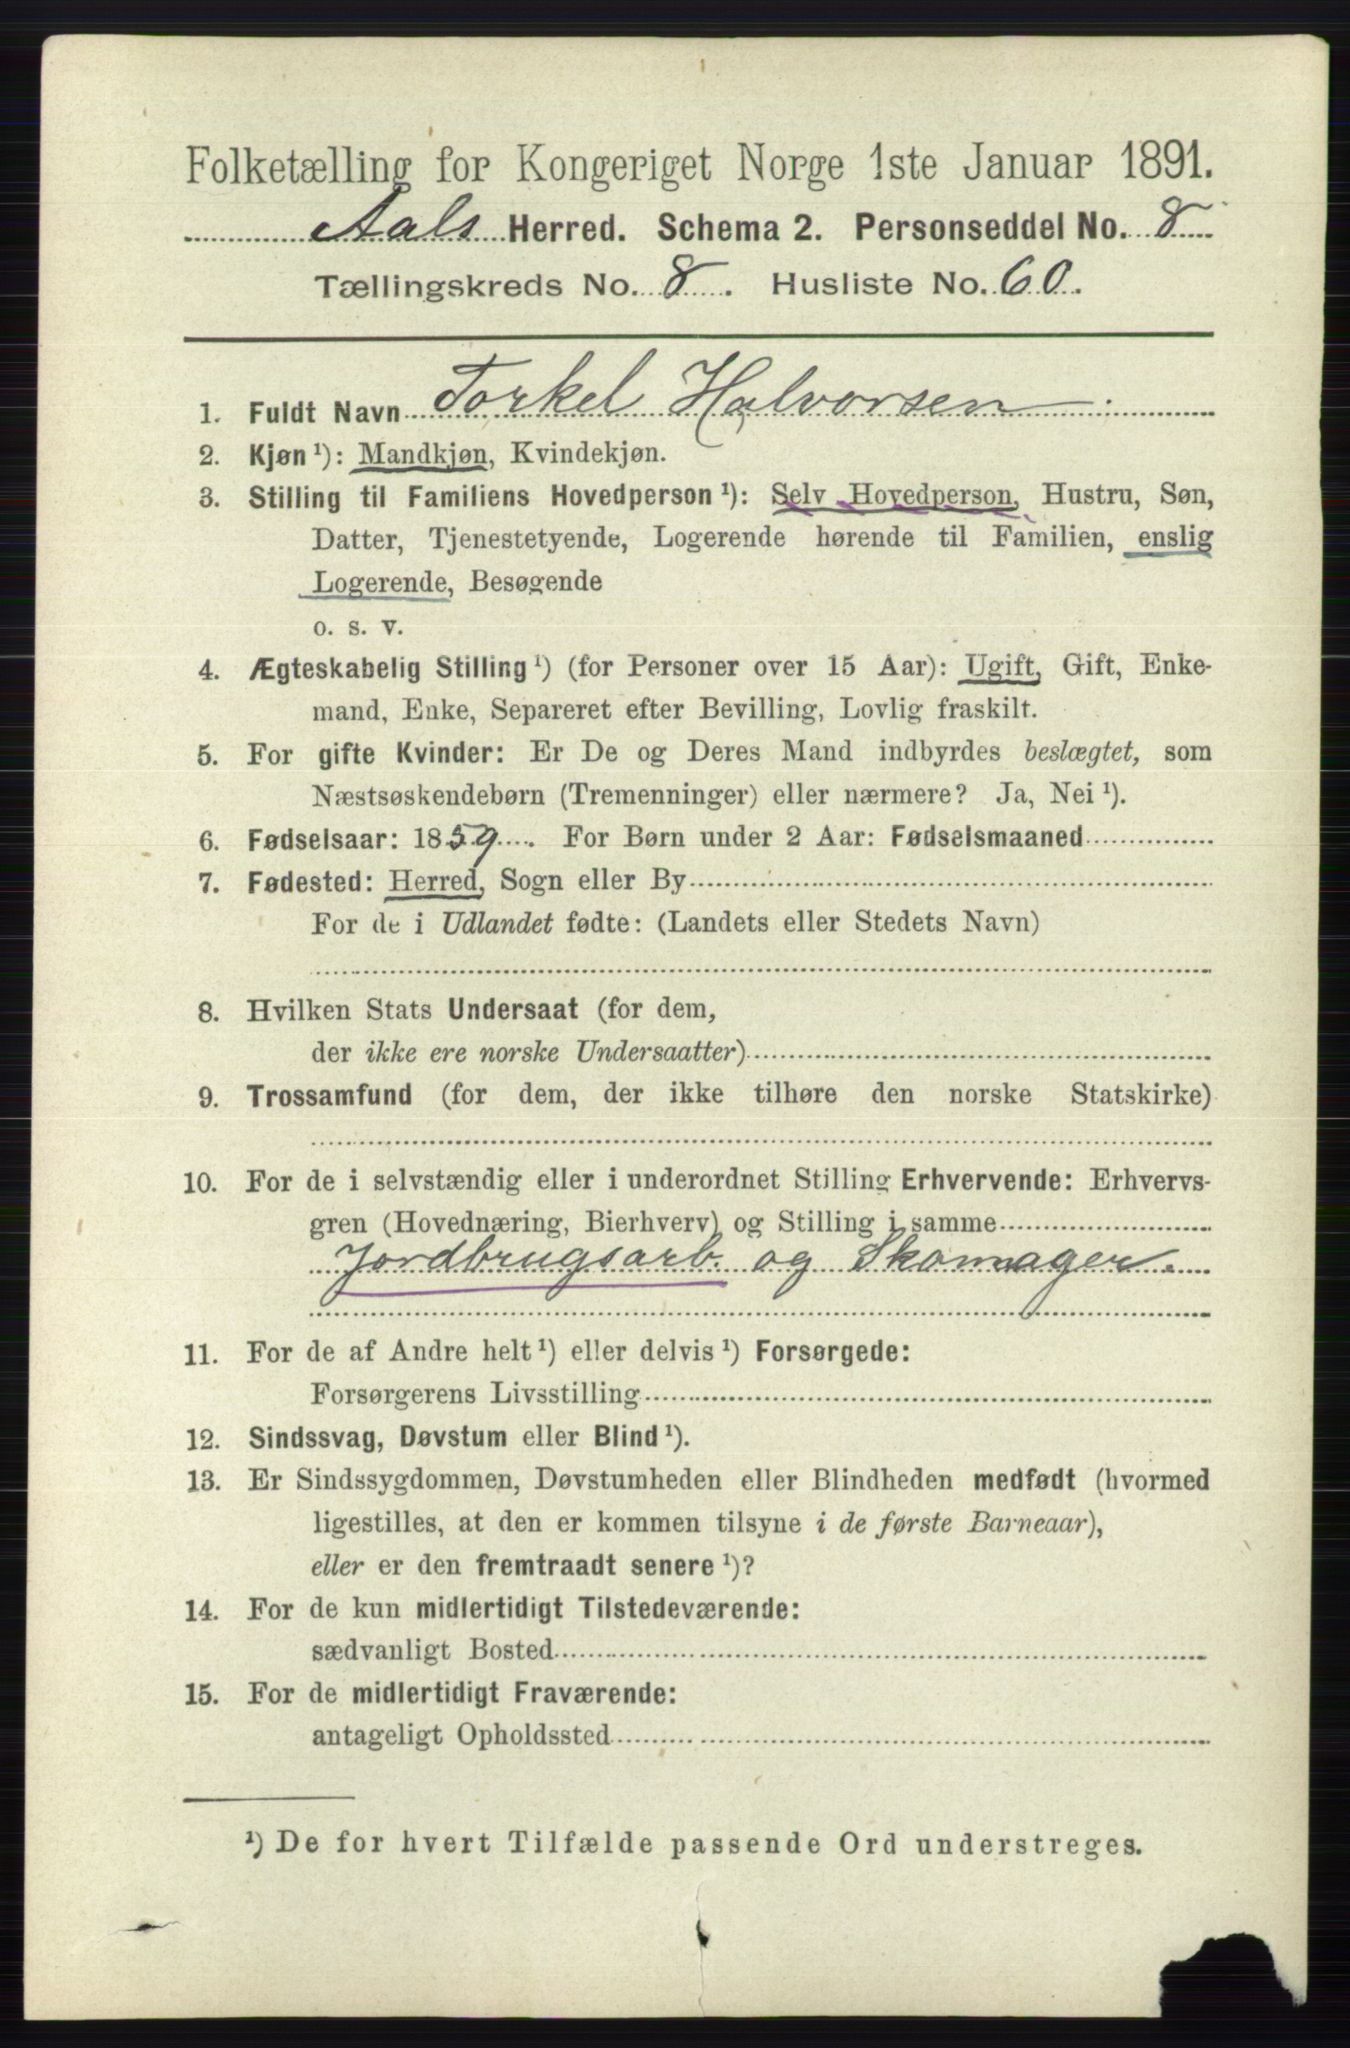 Folketælling for Kongeriget Norge 1ste Januar 1891.
Aals Herred. Schema 2. Personseddel No. 8
Tællingskreds No. 8. Husliste No. 60.
1. Fuldt Navn Torkel Halvorsen
2. Kjøn ¹): Mandkjøn, Kvindekjøn.
3. Stilling til Familiens Hovedperson ¹): Selv Hovedperson, Hustru, Søn,
Datter, Tjenestetyende, Logerende hørende til Familien, enslig
Logerende, Besøgende
o. s. v.
4. Ægteskabelig Stilling ¹) (for Personer over 15 Aar): Ugift, Gift, Enke-
mand, Enke, Separeret efter Bevilling, Lovlig fraskilt.
5. For gifte Kvinder: Er De og Deres Mand indbyrdes beslægtet, som
Næstsøskendebørn (Tremenninger) eller nærmere? Ja, Nei ¹).
6. Fødselsaar: 1859. For Børn under 2 Aar: Fødselsmaaned
7. Fødested: Herred, Sogn eller By
For de i Udlandet fødte: (Landets eller Stedets Navn)
8. Hvilken Stats Undersaat (for dem,
der ikke ere norske Undersaatter)
9. Trossamfund (for dem, der ikke tilhøre den norske Statskirke)
10. For de i selvstændig eller i underordnet Stilling Erhvervende: Erhvervs-
gren (Hovednæring, Bierhverv) og Stilling i samme
Jordbrugsarb. og Skomager.
11. For de af Andre helt ¹) eller delvis ¹) Forsørgede:
Forsørgerens Livsstilling
12. Sindssvag, Døvstum eller Blind ¹).
13. Er Sindssygdommen, Døvstumheden eller Blindheden medfødt (hvormed
ligestilles, at den er kommen tilsyne i de første Barneaar),
eller er den fremtraadt senere ¹)?
14. For de kun midlertidigt Tilstedeværende:
sædvanligt Bosted
15. For de midlertidigt Fraværende:
antageligt Opholdssted
¹) De for hvert Tilfælde passende Ord understreges.